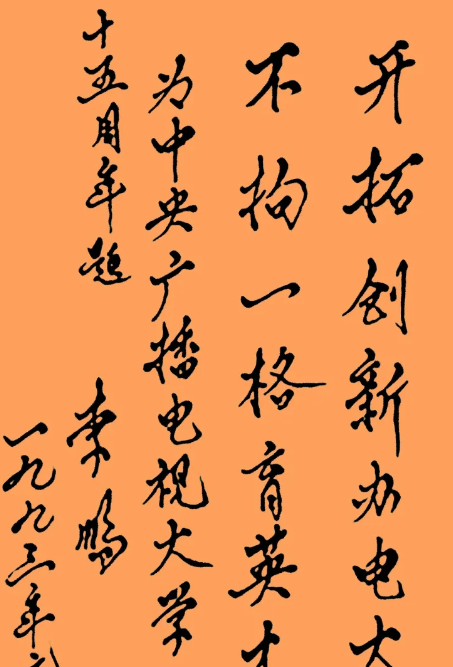 开拓创新办电大
不拘一格育英才
为中央广播电视大学
十五周年题 李鹏
一九九三年